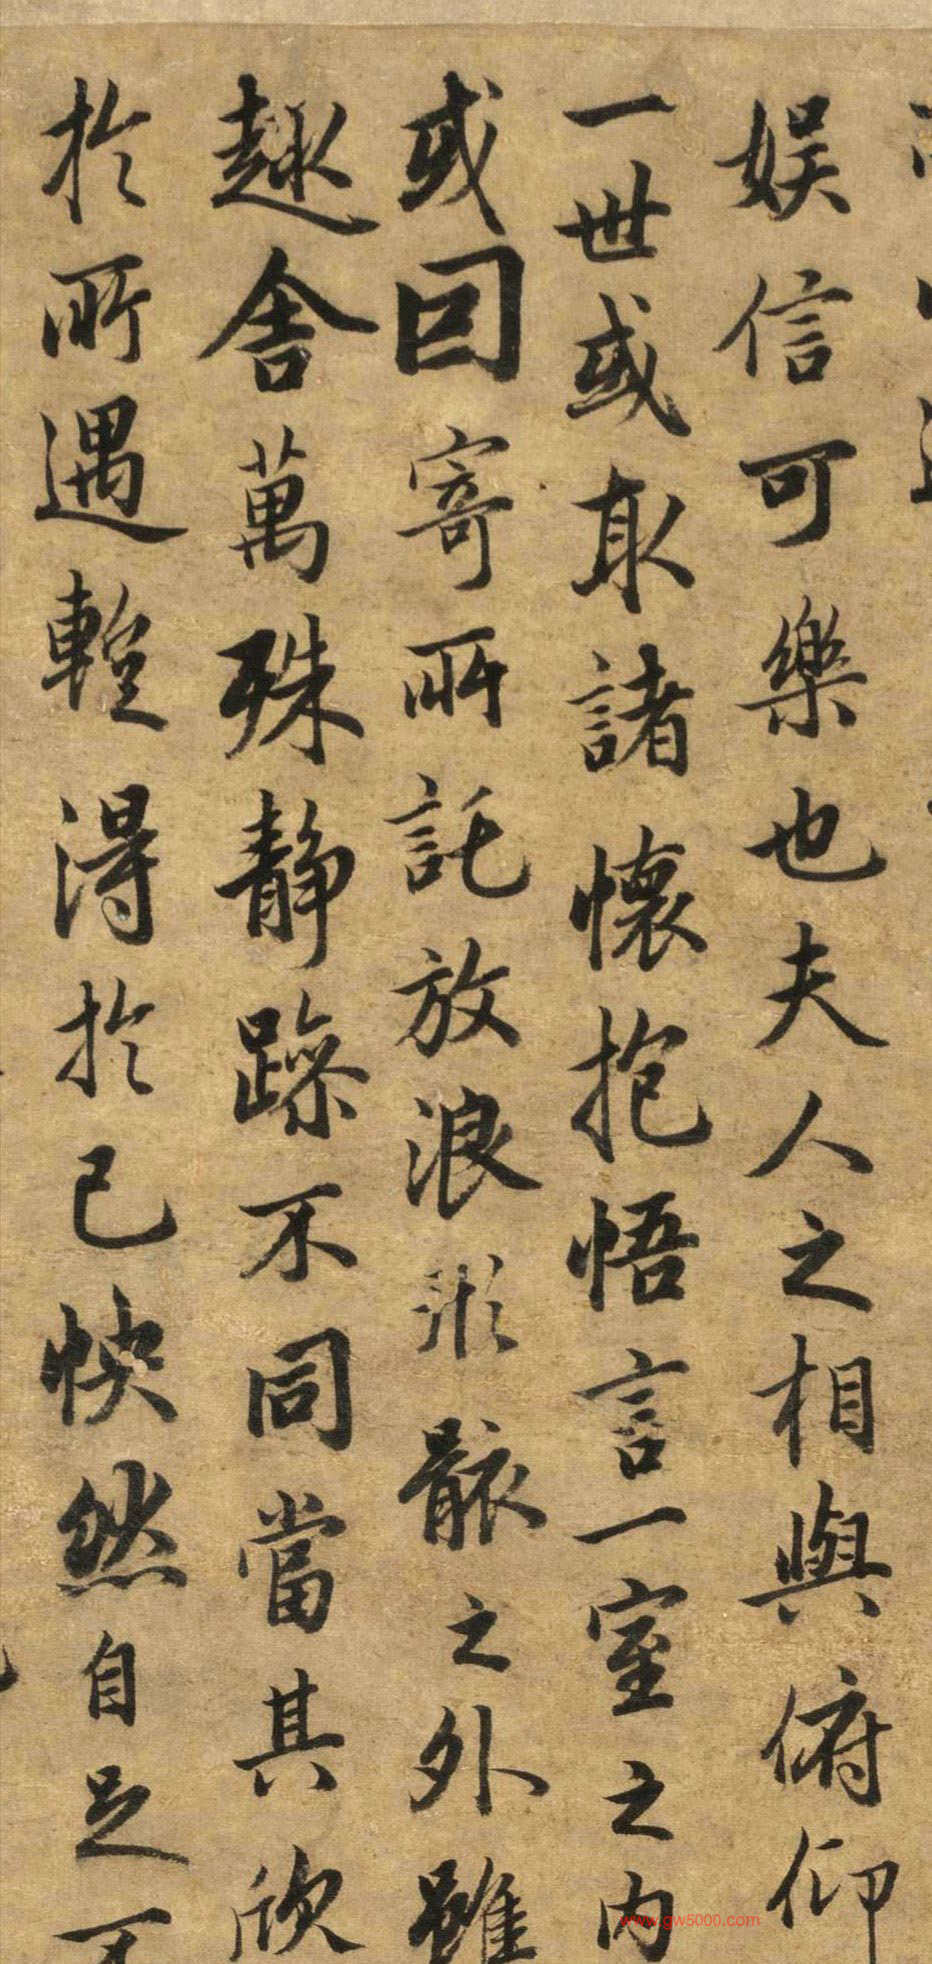 娛信可樂也夫人之相與俯仰
一世或取諸懷抱悟言一室之内
或因寄所託放浪形骸之外雖
趣舍萬殊靜躁不同當其欣
於所遇蹔得於己快然自足不
www.gw5000.com